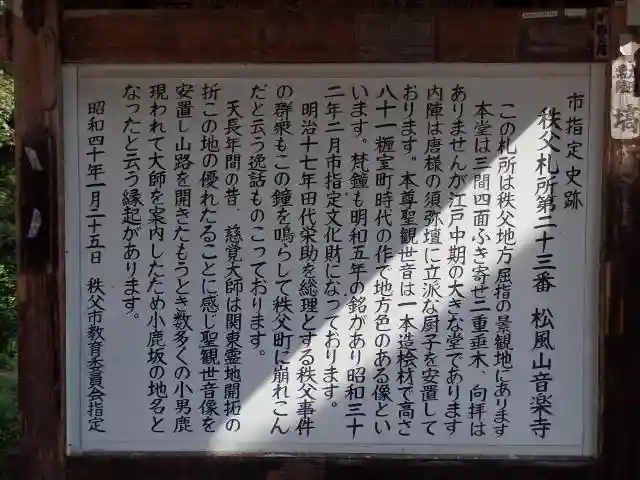 市指定史跡
秩父札所第二十三番 松風山音楽寺
この札所は秩父地方屈指の景観地にあります
本堂は三間四面ふき寄せ二重垂木、向拝は
ありませんが江戸中期の大きな堂であります
内陣は唐様の須弥壇に立派な厨子を安置して
おります。本尊聖観世音は一本造桧材で高さ
八十一糎室町時代の作で地方色のある像とい
います。梵鐘も明和五年の銘があり昭和三十
二年二月市指定文化財になっております。
明治十七年田代栄助を総理とする秩父事件
の群衆もこの鐘を鳴らして秩父町に崩れこん
だと云う逸話ものこっております。
天長年間の昔、慈覚大師は関東霊地開拓の
折この地の優れたることに感じ聖観世音像を
安置し山路を開きたもうとき数多くの小男鹿
現われて大師を案内したため小鹿坂の地名と
なったと云う縁起があります。
昭和四十年一月二十五日 秩父市教育委員会指定